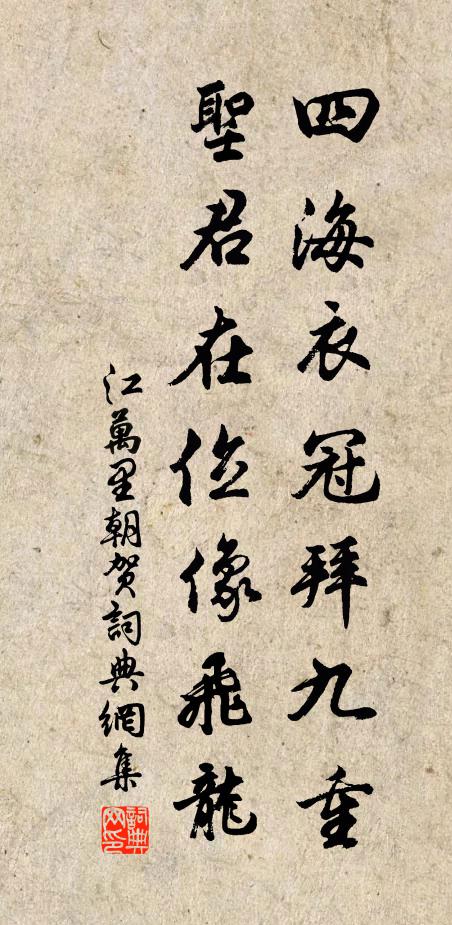 四海衣冠拜九重
聖君在位像飛龍
江萬里朝贺詞典網集
詞典網印